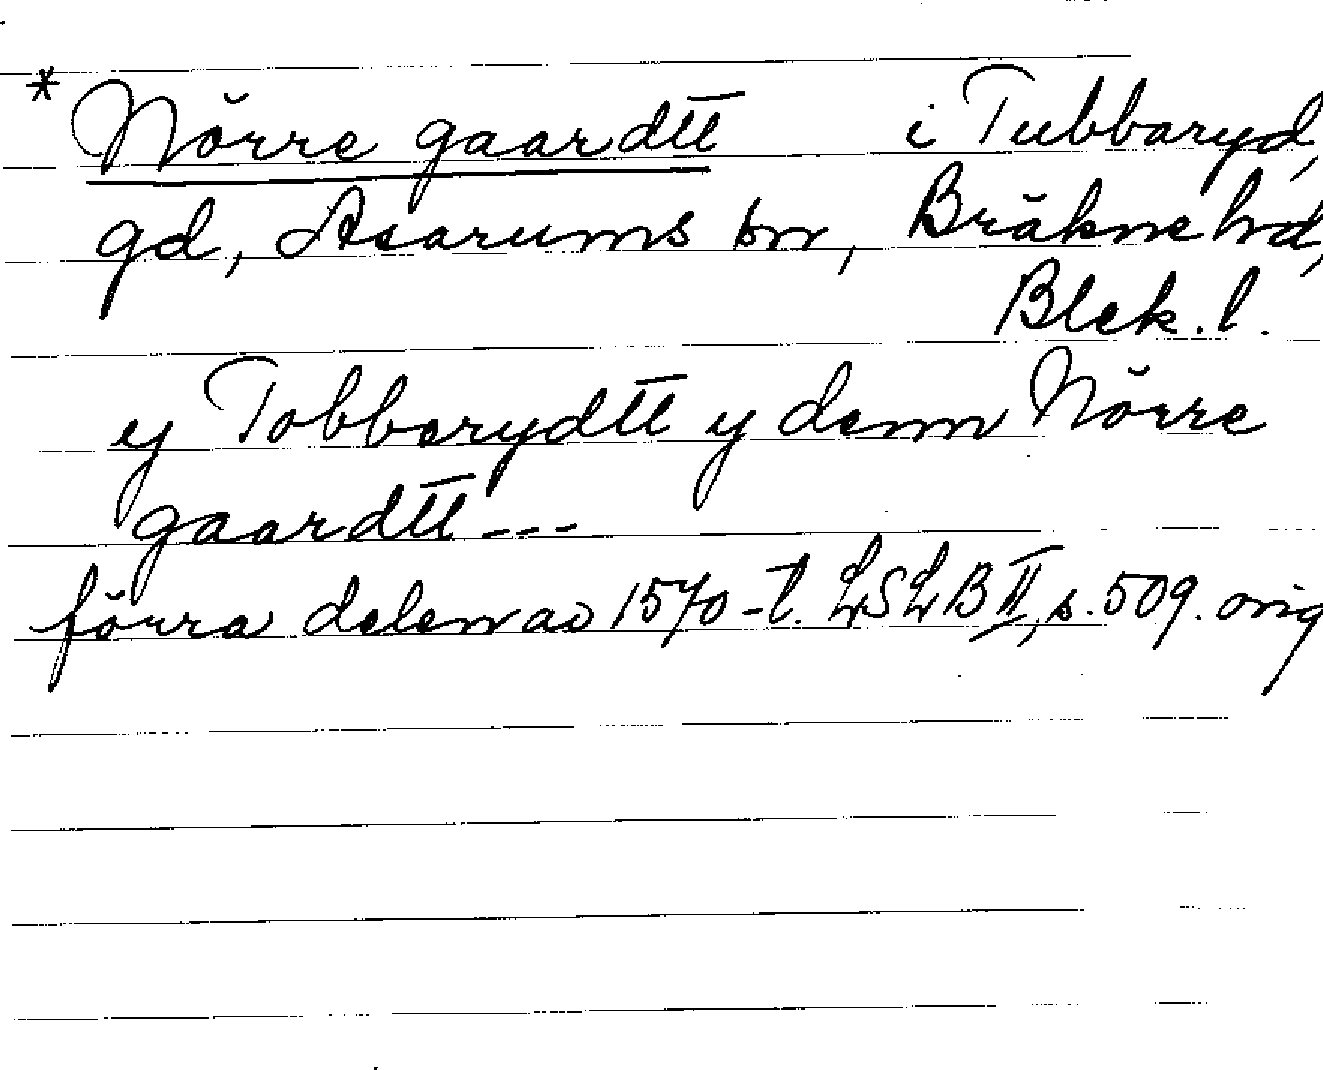 * Nörre gaardtt i Tubbaryd,
gd, Asarums sn, Bräkne hd,
Blek. l.
y Tobberydtt y denn Nörre
gaardtt ---
förra delen av 1570-t. LSLB II, s. 509. orig